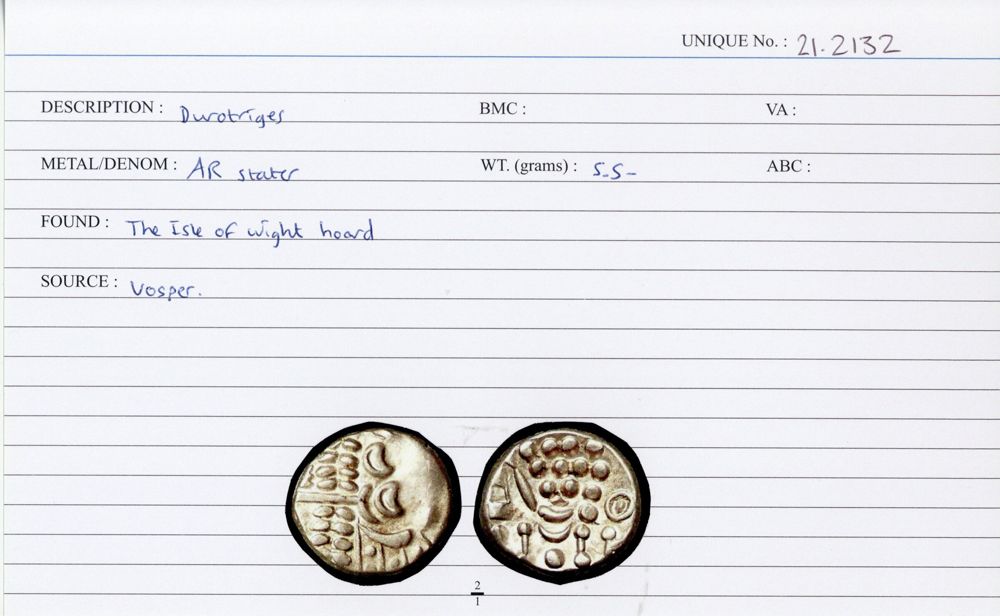 UNIQUE No. : 21.2132
DESCRIPTION : Durotriges BMC : VA :
METAL/DENOM : AR stater WT. (grams) : 5.5- ABC :
FOUND : The Isle of wight hoard
SOURCE : Vosper.
2
1